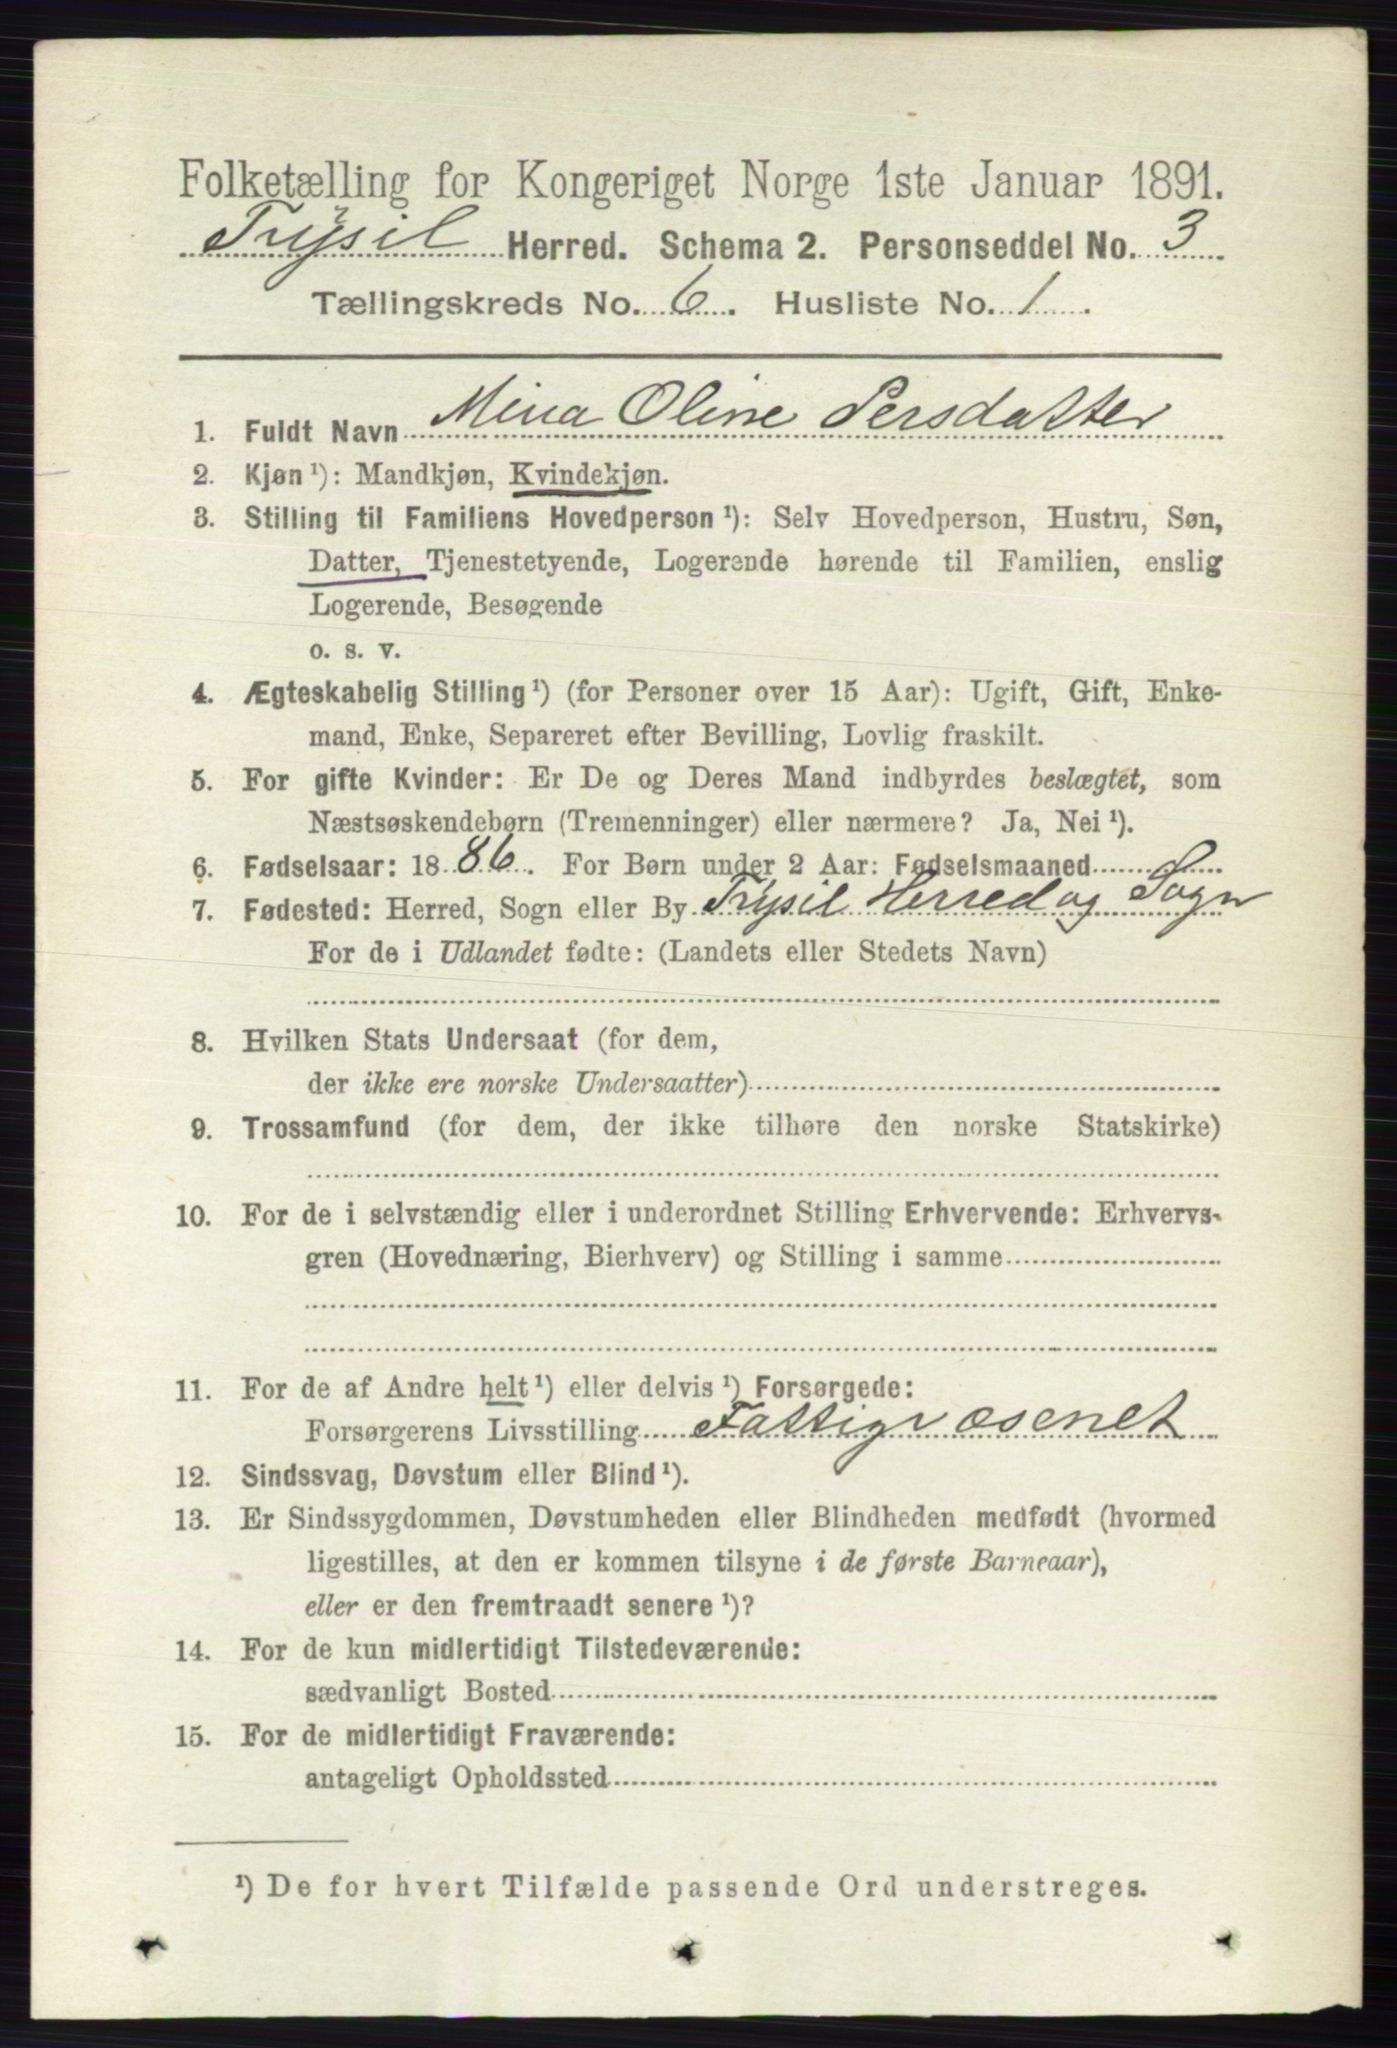 Folketælling for Kongeriget Norge 1ste Januar 1891.
Trysil Herred. Schema 2. Personseddel No. 3
Tællingskreds No. 6. Husliste No. 1.
1. Fuldt Navn Mina Oline Persdatter
2. Kjøn ¹): Mandkjøn, Kvindekjøn.
3. Stilling til Familiens Hovedperson ¹): Selv Hovedperson, Hustru, Søn,
Datter, Tjenestetyende, Logerende hørende til Familien, enslig
Logerende, Besøgende
o. s. v.
4. Ægteskabelig Stilling ¹) (for Personer over 15 Aar): Ugift, Gift, Enke-
mand, Enke, Separeret efter Bevilling, Lovlig fraskilt.
5. For gifte Kvinder: Er De og Deres Mand indbyrdes beslægtet, som
Næstsøskendebørn (Tremenninger) eller nærmere? Ja, Nei ¹).
6. Fødselsaar: 1886. For Børn under 2 Aar: Fødselsmaaned
7. Fødested: Herred, Sogn eller By Trysil Herred og Sogn
For de i Udlandet fødte: (Landets eller Stedets Navn)
8. Hvilken Stats Undersaat (for dem,
der ikke ere norske Undersaatter)
9. Trossamfund (for dem, der ikke tilhøre den norske Statskirke)
10. For de i selvstændig eller i underordnet Stilling Erhvervende: Erhvervs-
gren (Hovednæring, Bierhverv) og Stilling i samme
11. For de af Andre helt ¹) eller delvis ¹) Forsørgede:
Forsørgerens Livsstilling Fattigvæsenet
12. Sindssvag, Døvstum eller Blind ¹).
13. Er Sindssygdommen, Døvstumheden eller Blindheden medfødt (hvormed
ligestilles, at den er kommen tilsyne i de første Barneaar),
eller er den fremtraadt senere ¹)?
14. For de kun midlertidigt Tilstedeværende:
sædvanligt Bosted
15. For de midlertidigt Fraværende:
antageligt Opholdssted
¹) De for hvert Tilfælde passende Ord understreges.